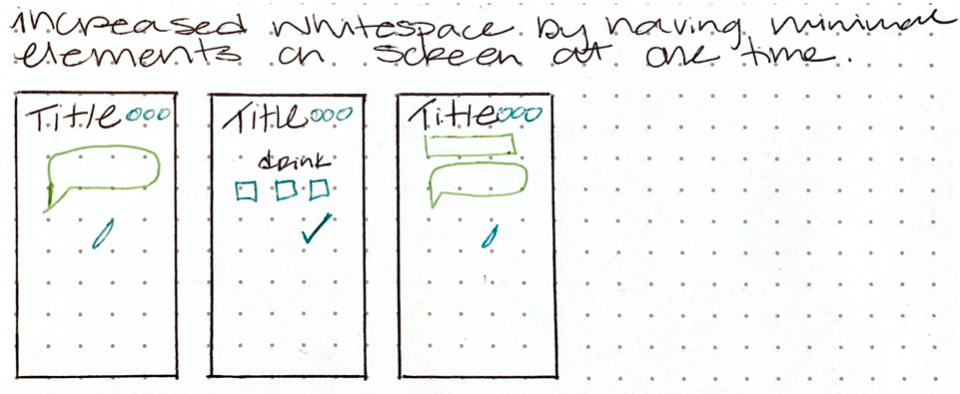 increased whitespace by having minimal
elements on screen at one time.
Title Title Title
drink